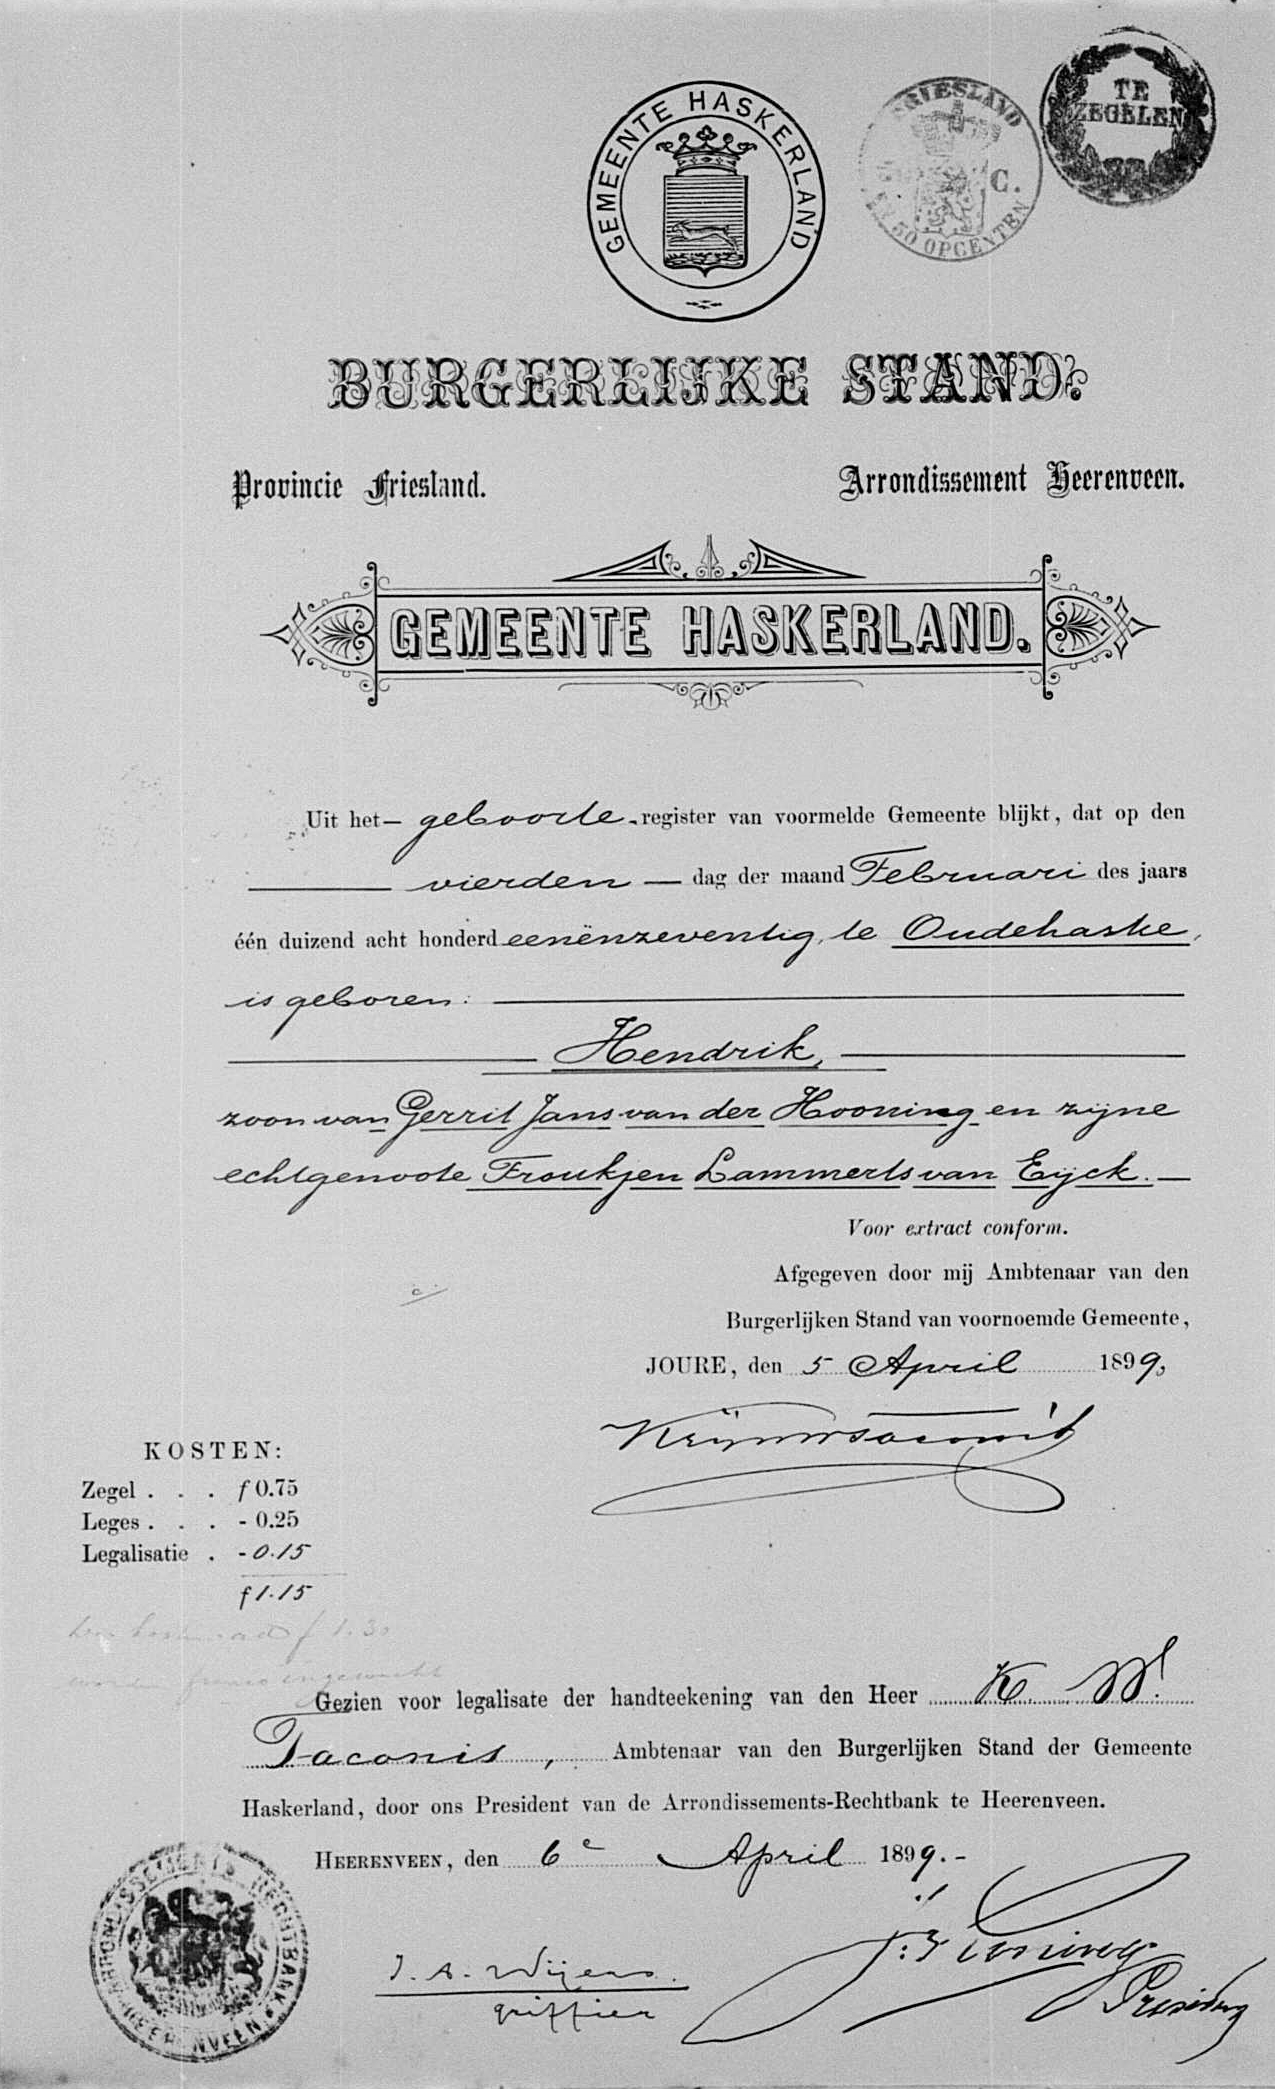 GEMEENTE HASKERLAND
FRIESLAND
C.
50 OPCENTEN
TE
ZEGELEN
BURGERLIJKE STAND.
Provincie Friesland.
Arrondissement Heerenveen.
GEMEENTE HASKERLAND.
Uit het geboorte-register van voormelde Gemeente blijkt, dat op den
vierden dag der maand Februari des jaars
één duizend acht honderd eenënzeventig, te Oudehaske,
is geboren:
Hendrik,
zoon van Gerrit Jans van der Hooning en zijne
echtgenoote Froukjen Lammerts van Eijck.
Voor extract conform.
Afgegeven door mij Ambtenaar van den
Burgerlijken Stand van voornoemde Gemeente,
JOURE, den 5 April 1899,
KOSTEN:
Zegel . . . f 0.75
Leges . . . - 0.25
Legalisatie . - 0.15
f 1.15
f 1.30
Gezien voor legalisate der handteekening van den Heer K. W.
Taconis, Ambtenaar van den Burgerlijken Stand der Gemeente
Haskerland, door ons President van de Arrondissements-Rechtbank te Heerenveen.
HEERENVEEN, den 6e April 1899.-
ARRONDISSEMENTS RECHTBANK
HEERENVEEN
griffier